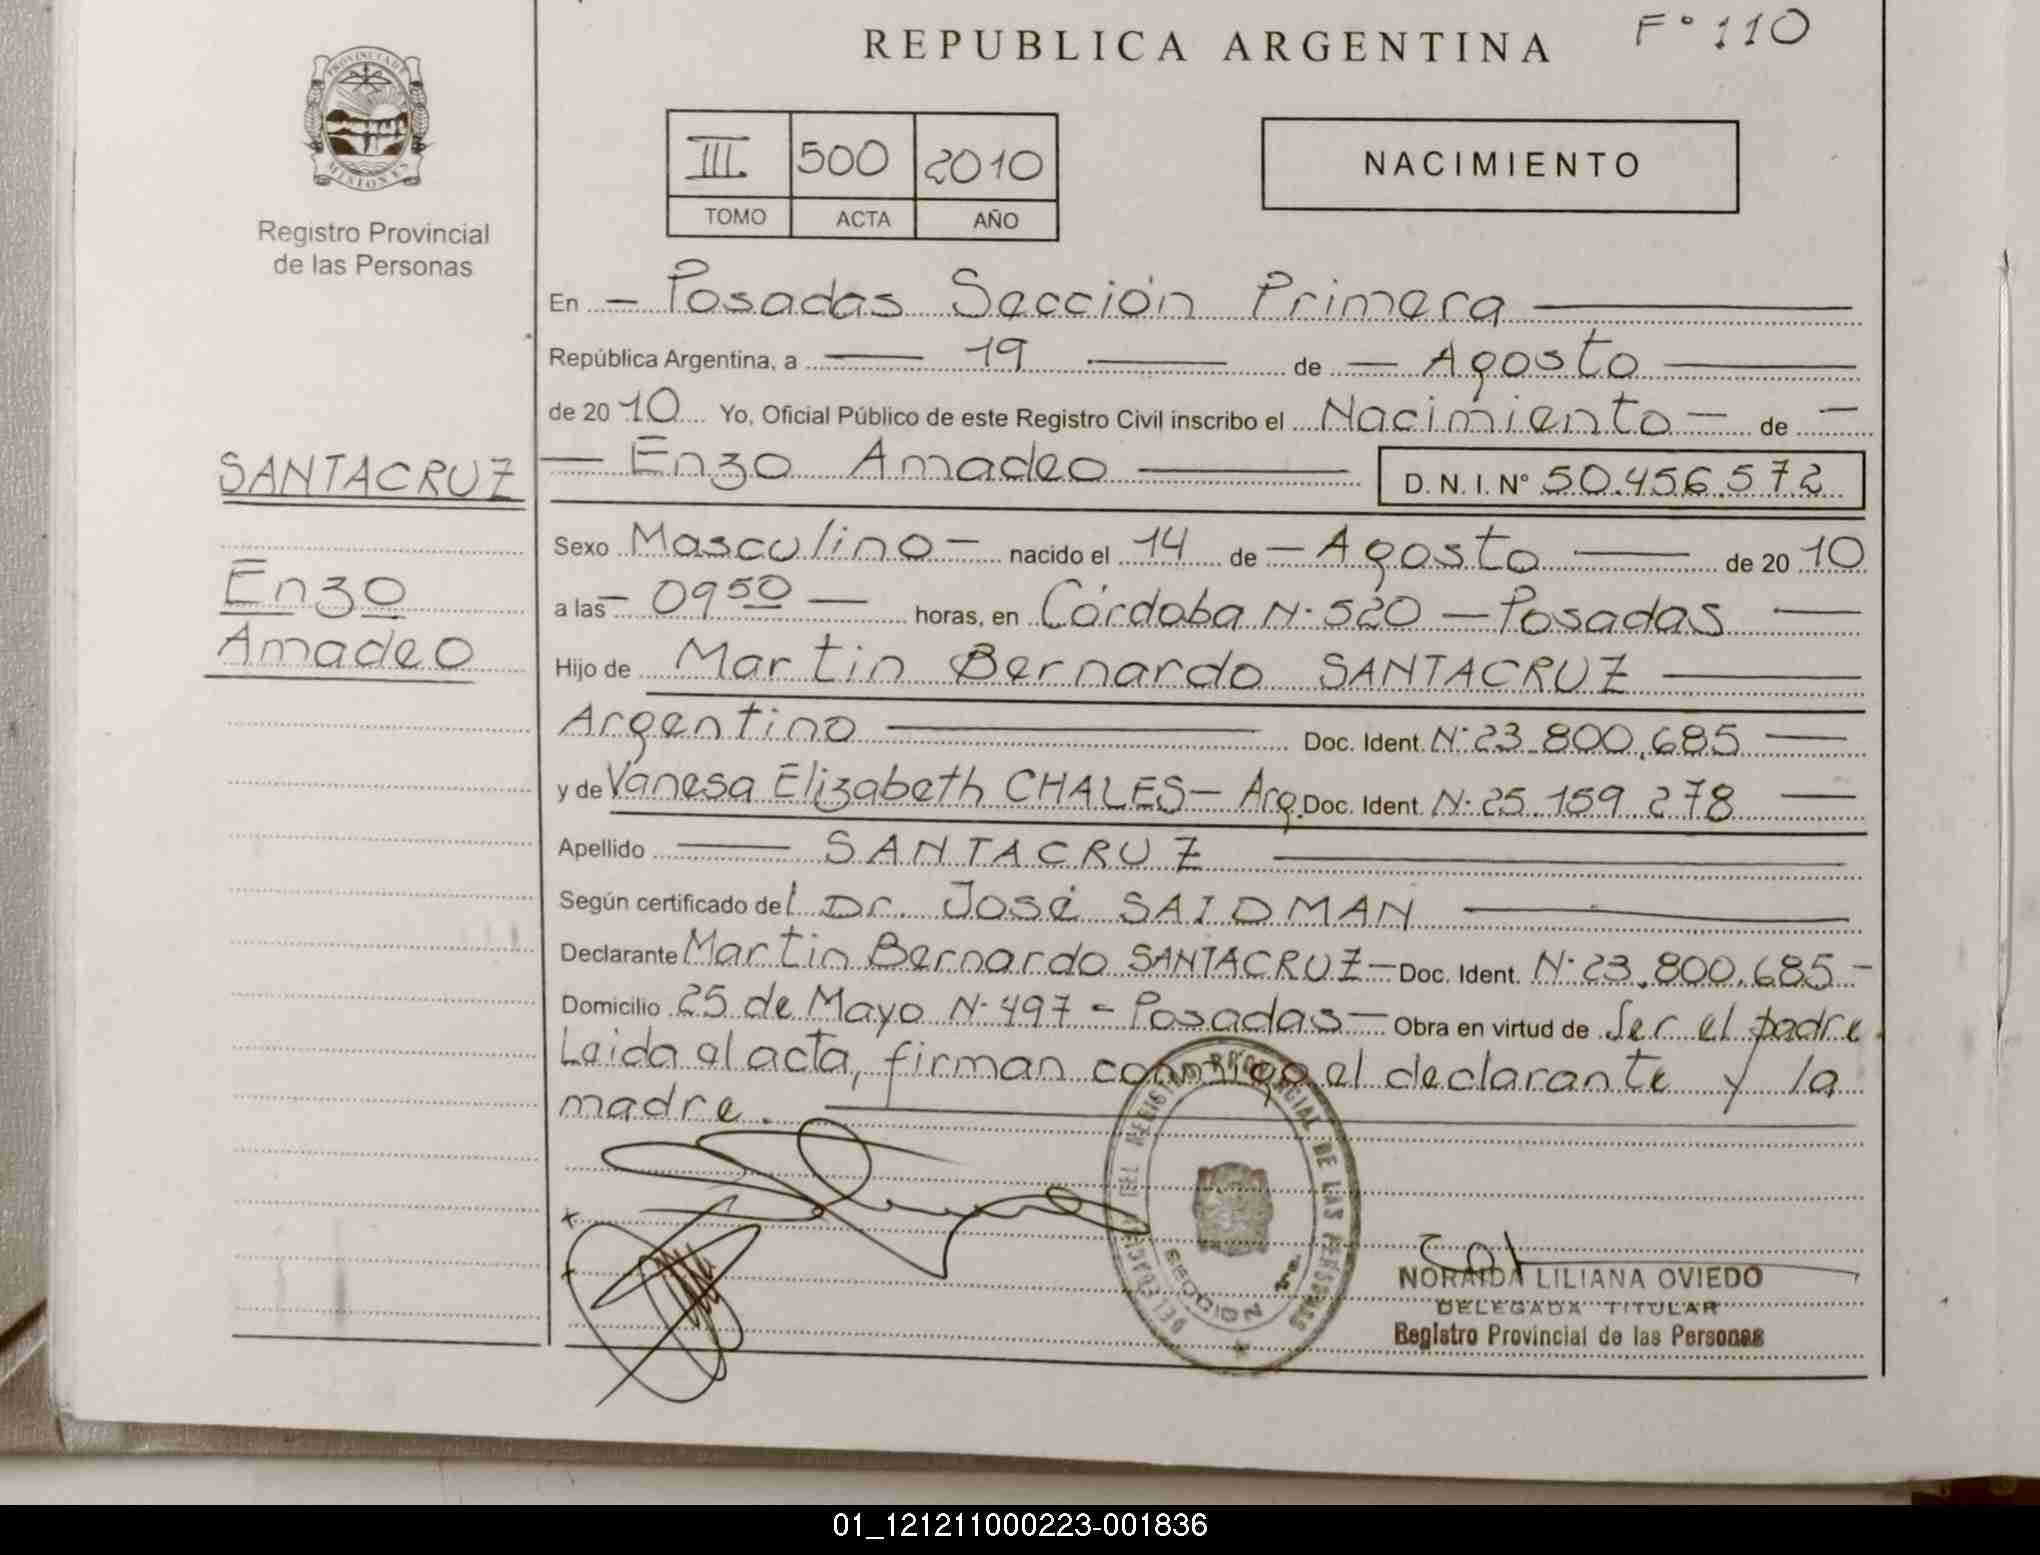 REPUBLICA ARGENTINA
F° 110
PROVINCIA DE
MISIONES
Registro Provincial
de las Personas
III. 500 2010
TOMO ACTA AÑO
NACIMIENTO
En – Posadas Sección Primera
República Argentina, a 19 de Agosto
de 20 10 Yo, Oficial Público de este Registro Civil inscribo el Nacimiento – de –
Enzo Amadeo D. N. I. N° 50.456.572
SANTACRUZ
Enzo
Amadeo
Sexo Masculino – nacido el 14 de – Agosto de 20 10
a las – 09 50 – horas, en Córdoba N· 520 – Posadas
Hijo de Martin Bernardo SANTACRUZ
Argentino Doc. Ident. N· 23.800.685
y de Vanesa Elizabeth CHALES – Arg. Doc. Ident. N· 25.159.278
Apellido SANTACRUZ
Según certificado del Dr. José SAIDMAN
Declarante Martin Bernardo SANTACRUZ – Doc. Ident. N· 23.800.685 –
Domicilio 25 de Mayo N· 497 – Posadas – Obra en virtud de Ser el padre.
Leida el acta, firman conmigo el declarante y la
madre.
DELEGACION DEL REGISTRO PROVINCIAL DE LAS PERSONAS
SECCION 1ra.
NORAIDA LILIANA OVIEDO
DELEGADA TITULAR
Registro Provincial de las Personas
01_121211000223-001836